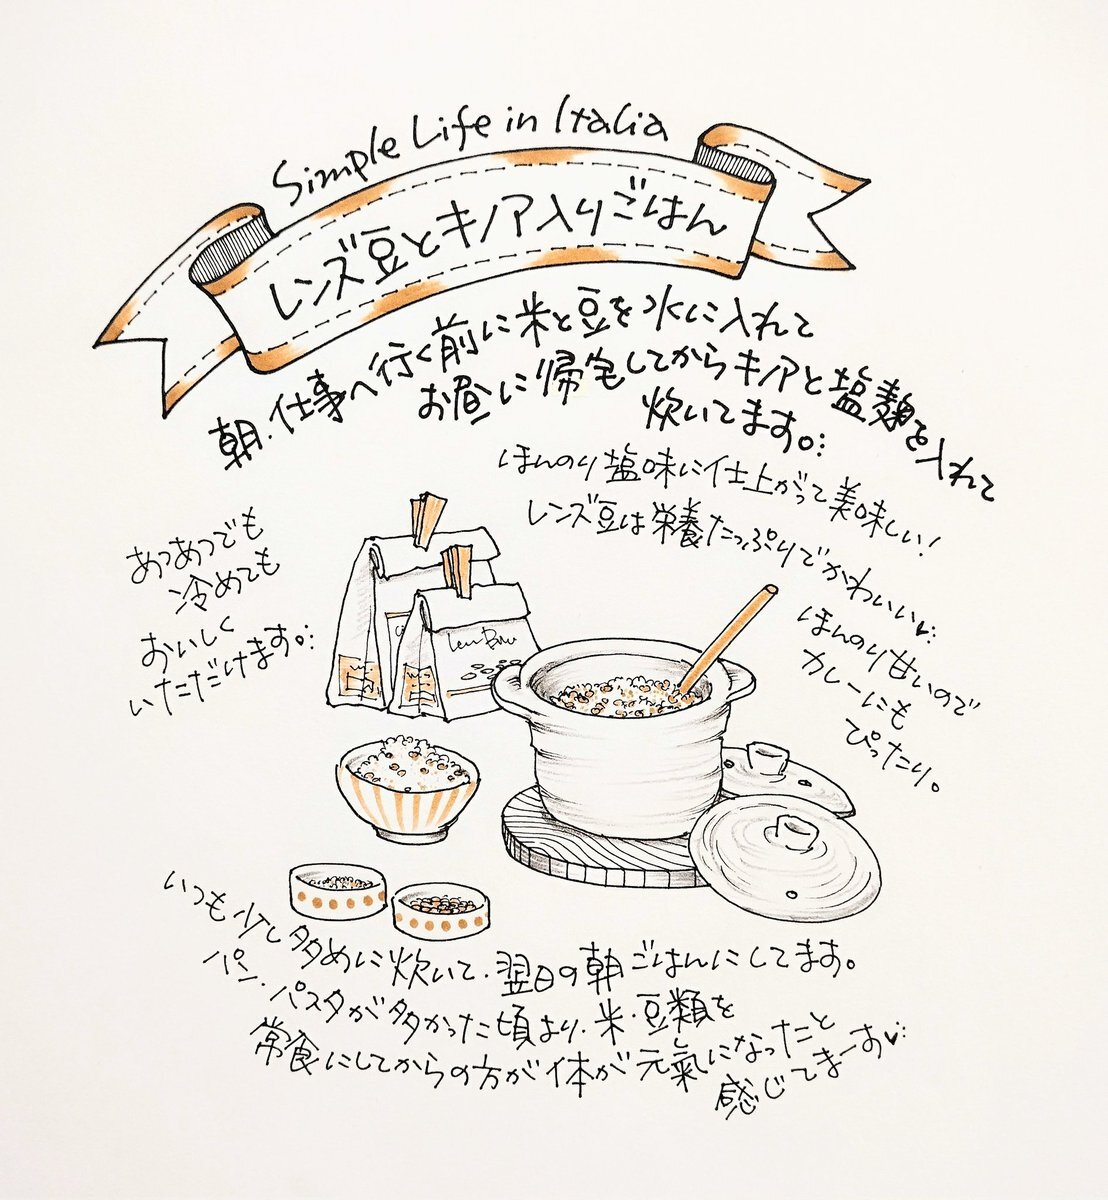 Simple Life in Italia
レンズ豆とキノア入りごはん
朝、仕事へ行く前に米と豆を水に入れて
お昼に帰宅してからキノアと塩麹を入れて
炊いてます。
ほんのり塩味に仕上がって美味しい!
レンズ豆は栄養たっぷりでかわいい♥
あつあつでも
冷めても
おいしく
いただけます。
ほんのり甘いので
カレーにも
ぴったり。
いつも少し多めに炊いて、翌日の朝ごはんにしてます。
パン、パスタが多かった頃より、米、豆類を
常食にしてからの方が体が元氣になったと
感じてまーす♥